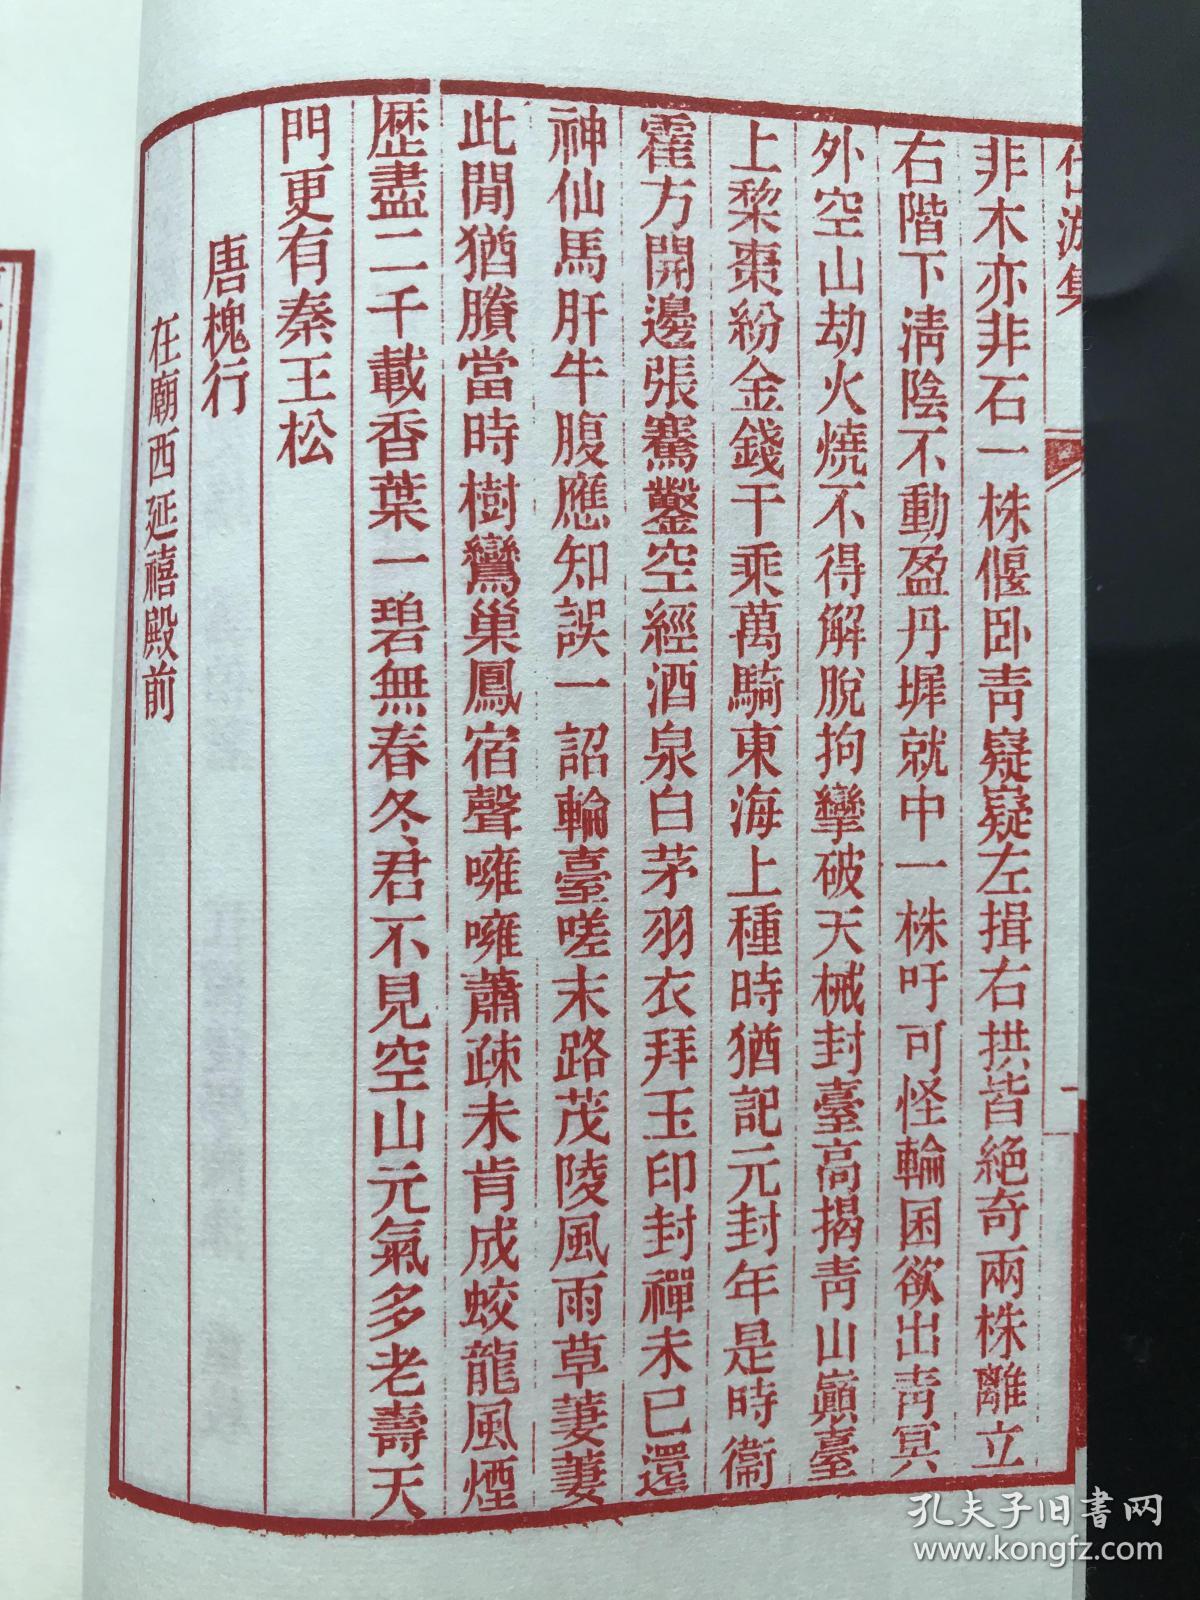 岱游集
一
非木亦非石一株偃卧青嶷嶷左揖右拱皆絶奇兩株離立
右階下淸陰不動盈丹墀就中一株吁可怪輪囷欲出靑冥
外空山劫火燒不得解脫拘攣破天械封臺高揭靑山巔臺
上棃棗紛金錢千乘萬騎東海上種時猶記元封年是時衞
霍方開邊張騫鑿空經酒泉白茅羽衣拜玉印封禪未已還
神仙馬肝牛腹應知誤一詔輪臺嗟末路茂陵風雨草萋萋
此閒猶賸當時樹鸞巢鳳宿聲噰噰蕭疎未肯成蛟龍風煙
歷盡二千載香葉一碧無春冬君不見空山元氣多老壽天
門更有秦王松
唐槐行
在廟西延禧殿前
孔夫子旧书网
www.kongfz.com